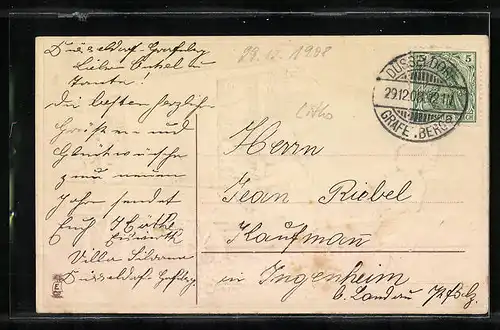 Düsseldorf-Grafenberg
Lieber Onkel u.
Tante!
Die besten herzlichen
Grüße und
Glückwünsche
zum neuen
Jahr sendet
Euch Käthe
Villa
Düsseldorf
29.12.1908
Litho
5
DÜSSELDORF
29.12.08
GRAFENBERG
Herrn
Jean Riebel
Kaufmann
in Ingenheim
b. Landau Pfalz